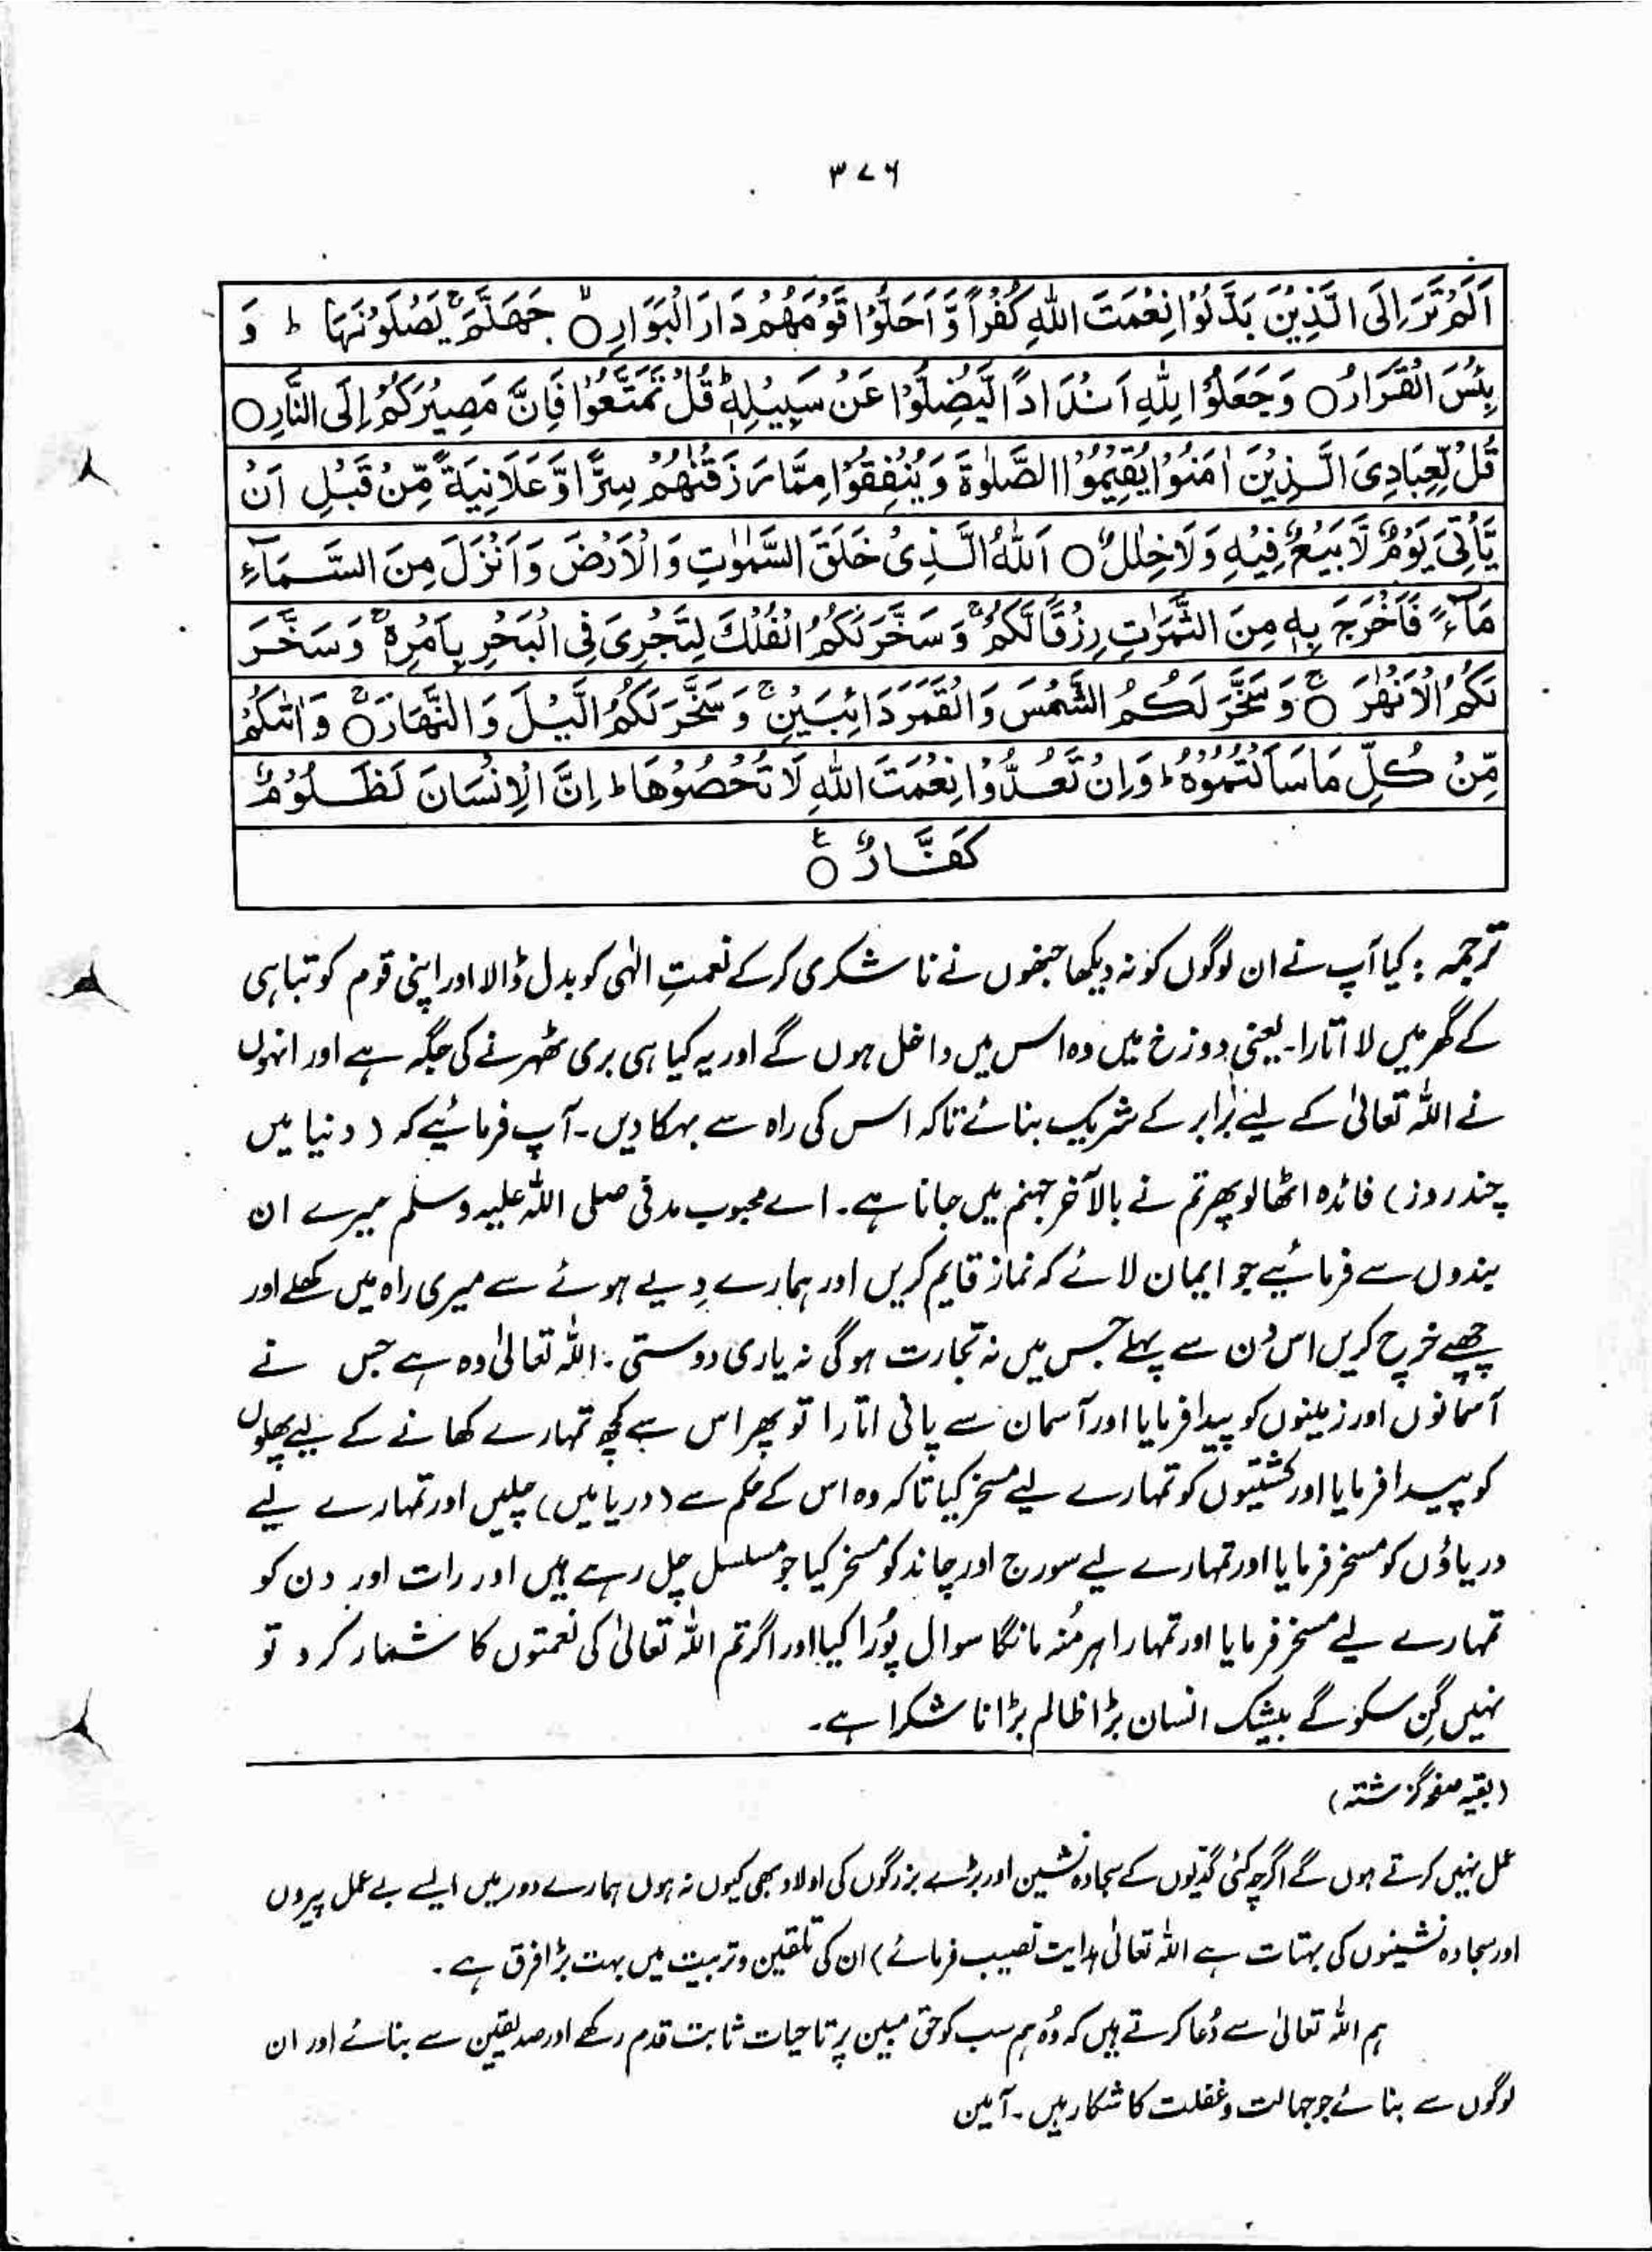 ۳۷۶
اَلَمْ تَرَ اِلَى الَّذِیْنَ بَدَّلُوْا نِعْمَتَ اللّٰهِ كُفْرًا وَّ اَحَلُّوْا قَوْمَهُمْ دَارَ الْبَوَارِۙ○ جَهَنَّمَۚ یَصْلَوْنَهَا ؕ وَ
بِئْسَ الْقَرَارُ○ وَجَعَلُوْا لِلّٰهِ اَنْدَادًا لِّیُضِلُّوْا عَنْ سَبِیْلِهٖؕ قُلْ تَمَتَّعُوْا فَاِنَّ مَصِیْرَكُمْ اِلَى النَّارِ○
قُلْ لِّعِبَادِیَ الَّذِیْنَ اٰمَنُوْا یُقِیْمُوا الصَّلٰوةَ وَیُنْفِقُوْا مِمَّا رَزَقْنٰهُمْ سِرًّا وَّعَلَانِیَةً مِّنْ قَبْلِ اَنْ
یَّاْتِیَ یَوْمٌ لَّا بَیْعٌ فِیْهِ وَلَا خِلٰلٌ○ اَللّٰهُ الَّذِیْ خَلَقَ السَّمٰوٰتِ وَالْاَرْضَ وَاَنْزَلَ مِنَ السَّمَآءِ
مَآءً فَاَخْرَجَ بِهٖ مِنَ الثَّمَرٰتِ رِزْقًا لَّكُمْۚ وَسَخَّرَ لَكُمُ الْفُلْكَ لِتَجْرِیَ فِی الْبَحْرِ بِاَمْرِهٖۚ وَسَخَّرَ
لَكُمُ الْاَنْهٰرَ○ۚ وَسَخَّرَ لَكُمُ الشَّمْسَ وَالْقَمَرَ دَآئِبَیْنِۚ وَسَخَّرَ لَكُمُ الَّیْلَ وَالنَّهَارَ○ۚ وَاٰتٰكُمْ
مِّنْ كُلِّ مَا سَاَلْتُمُوْهُؕ وَاِنْ تَعُدُّوْا نِعْمَتَ اللّٰهِ لَا تُحْصُوْهَاؕ اِنَّ الْاِنْسَانَ لَظَلُوْمٌ
كَفَّارٌ○ۧ
ترجمہ : کیا آپ نے ان لوگوں کو نہ دیکھا جنھوں نے ناشکری کرکے نعمتِ الٰہی کو بدل ڈالا اور اپنی قوم کو تباہی
کے گھر میں لا اتارا۔ یعنی دوزخ میں وہ اس میں داخل ہوں گے اور یہ کیا ہی بری ٹھہرنے کی جگہ ہے اور انہوں
نے اللہ تعالیٰ کے لیے برابر کے شریک بنائے تاکہ اس کی راہ سے بہکا دیں۔ آپ فرمائیے کہ (دنیا میں
چند روز) فائدہ اٹھا لو پھر تم نے بالآخر جہنم میں جانا ہے۔ اے محبوب مدنی صلی اللہ علیہ وسلم میرے ان
بندوں سے فرمائیے جو ایمان لائے کہ نماز قایم کریں اور ہمارے دِیے ہوئے سے میری راہ میں کھلے اور
چھپے خرچ کریں اس دن سے پہلے جس میں نہ تجارت ہوگی نہ یاری دوستی۔ اللہ تعالیٰ وہ ہے جس نے
آسمانوں اور زمینوں کو پیدا فرمایا اور آسمان سے پانی اتارا تو پھر اس سے کچھ تمہارے کھانے کے لیے پھلوں
کو پیدا فرمایا اور کشتیوں کو تمہارے لیے مسخر کیا تاکہ وہ اس کے حکم سے (دریا میں) چلیں اور تمہارے لیے
دریاؤں کو مسخر فرمایا اور تمہارے لیے سورج اور چاند کو مسخر کیا جو مسلسل چل رہے ہیں اور رات اور دن کو
تمہارے لیے مسخر فرمایا اور تمہارا ہر مُنہ مانگا سوال پُورا کیا اور اگر تم اللہ تعالیٰ کی نعمتوں کا شمار کرو تو
نہیں گِن سکو گے بیشک انسان بڑا ظالم بڑا ناشکرا ہے۔
(بقیہ صفحہ گزشتہ)
عمل نہیں کرتے ہوں گے اگرچہ کئی گدّیوں کے سجادہ نشین اور بڑے بزرگوں کی اولاد بھی کیوں نہ ہوں ہمارے دور میں ایسے بے عمل پیروں
اور سجادہ نشینوں کی بہتات ہے اللہ تعالیٰ ہدایت نصیب فرمائے) ان کی تلقین و تربیت میں بہت بڑا فرق ہے۔
ہم اللہ تعالیٰ سے دُعا کرتے ہیں کہ وُہ ہم سب کو حق مبین پر تاحیات ثابت قدم رکھے اور صدیقین سے بنائے اور ان
لوگوں سے بنائے جو جہالت و غفلت کا شکار ہیں۔ آمین